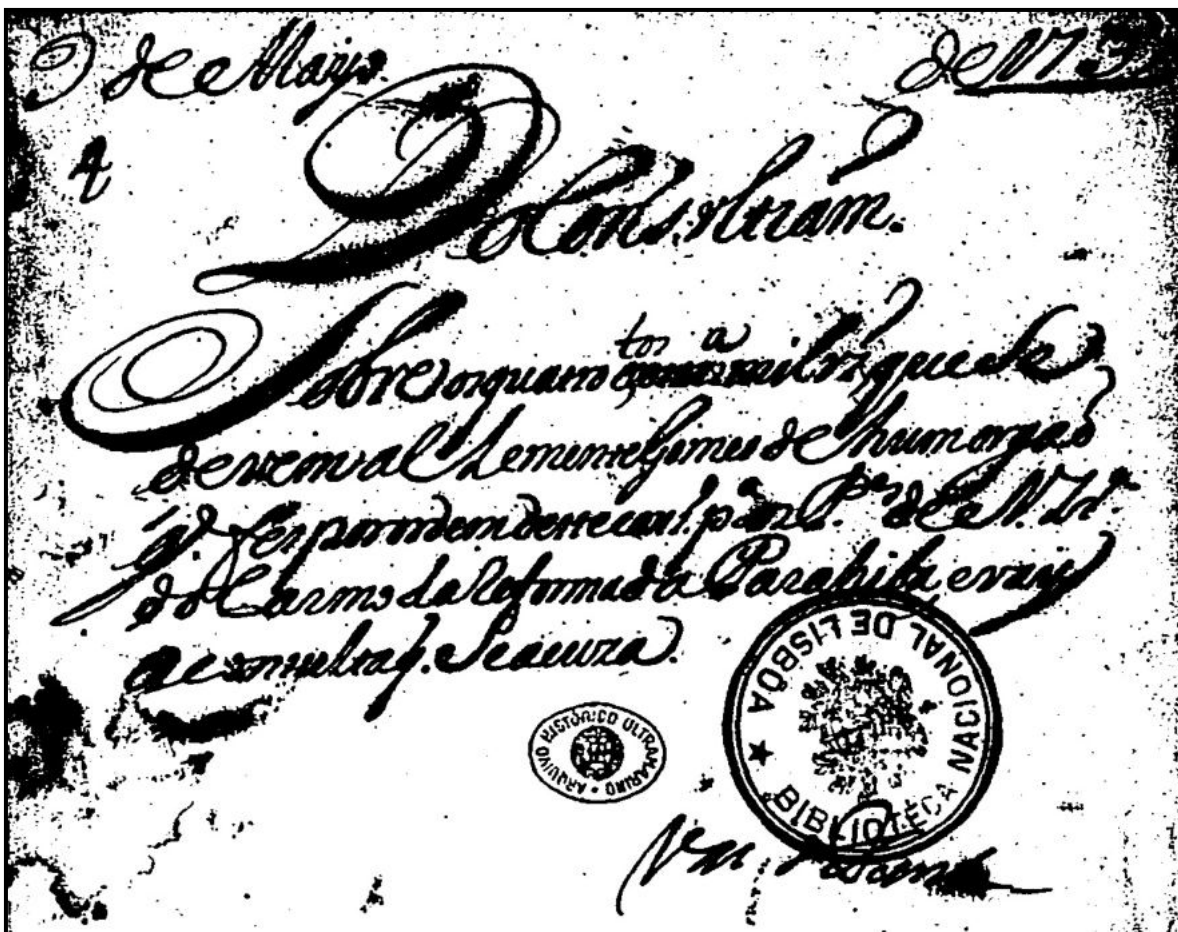 9 de Mayo de 173
4
Do Cons.º Ultram.
Sobre os quatro centos mil rz, que se
devem a Clemente Gomes de hum orgaõ
q̃. fes por ordem deste cons.º p.ª os P.es de N. Sr.ª
do Carmo da Reforma da Parahiba, e vay
a consulta q. se acuza.
ARQUIVO HISTÓRICO ULTRAMARINO
BIBLIOTECA NACIONAL DE LISBÔA